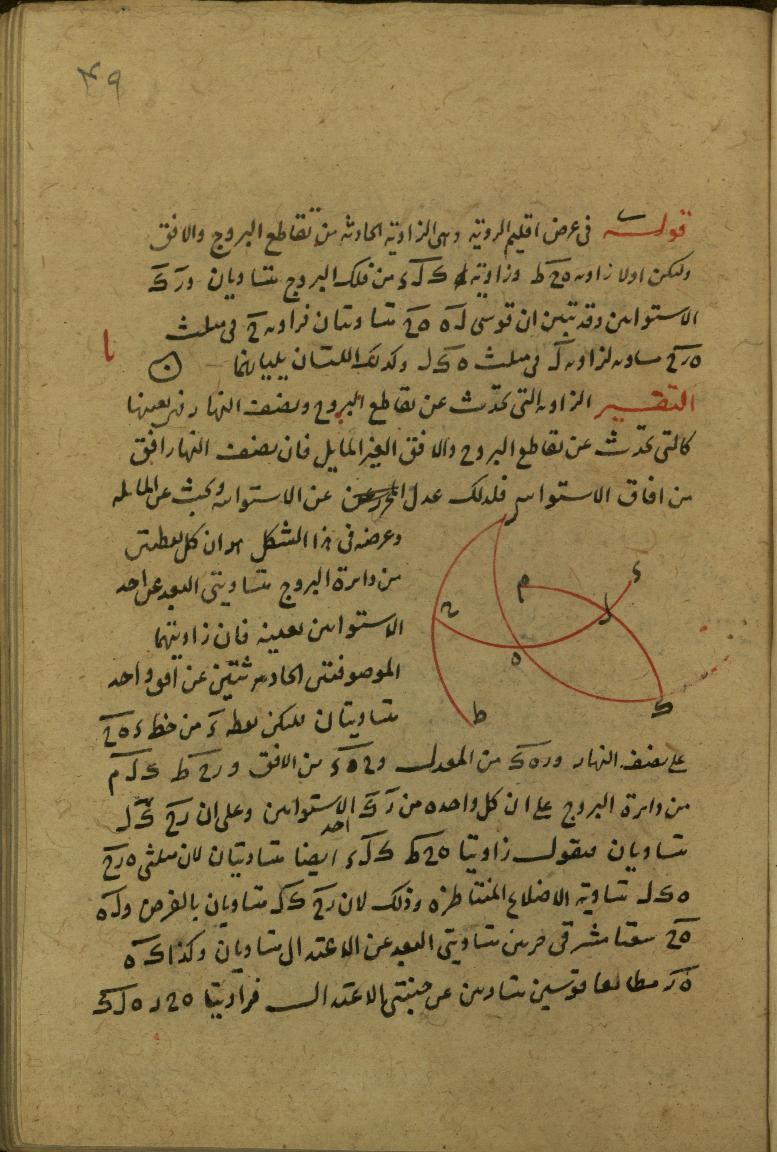 ٤٩
قوله فى عرض اقليم الروية وهى الزاوية الحادثة من تقاطع البروج والافق
وليكن اولا زاويه ه ح ط وزاوية ك ل ء من فلك البروج متساويان و ر ك
الاستوايين وقد تبين ان قوسى ل ه ه ح متساويتان فزاويه ح فى مثلث
ه ر ح مساويه لزاويه ل فى مثلث ه ك ل وكذلك اللتان يليانهما
التفسير الزاويه التى تحدث عن تقاطع البروج ونصف النهار
كالتى تحدث عن تقاطع البروج والافق الغير المايل فان نصف النهار افق
من افاق الاستواء فلذلك عدل عن الاستواء وبحث عن المايله
ر
وغرضه فى هذا الشكل ان كل نقطتين
من دايرة البروج متساويتى البعد عن احد
الاستوايين بعينه فان زاويتهما
الحادثتين عن افق واحد
متساويتان فليكن نقطه من خط ء ه ح
م
ء
ل
ح
ه
ك
ط
على نصف النهار و ر ه ك من المعدل و ح ه ء من الافق و ر ح ط ك ل م
من دايرة البروج على ان كل واحده من ر ك احد الاستوايين وعلى ان ر ح ك ل
متساويان فنقول زاويتا ه ح ط ك ل ء ايضا متساويتان لان مثلثى ه ر ح
ه ك ل متساوية الاضلاع المتناظرة وذلك لان ر ح ك ل متساويان بالفرض و ل ه
ه ح سعتا مشرقى جزئين متساويتى البعد عن الاعتدال متساويان وكذا ك ه
ه ر مطالعا قوسين متساويين عن جنبتى الاعتدال فزاويتا ه ح ر ه ل ك